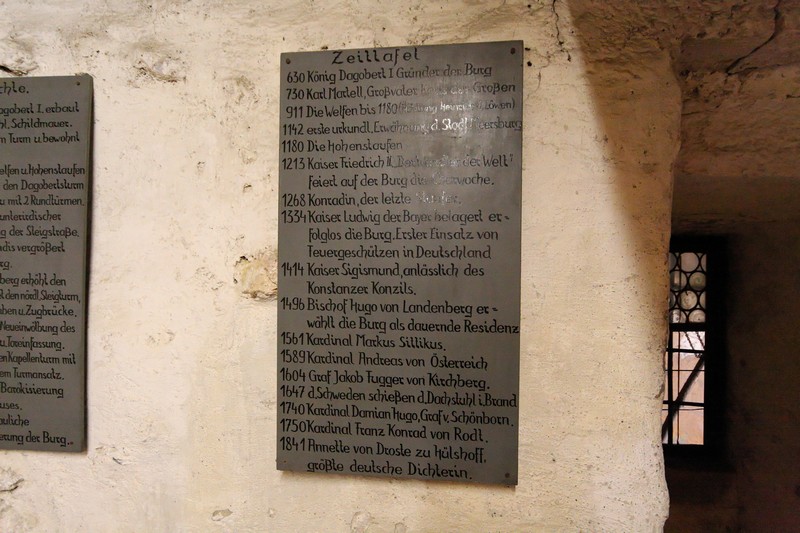 Zeittafel
630 König Dagobert I Gründer der Burg
730 Karl Martell, Großvater des Großen
911 Die Welfen bis 1180
1142 erste urkundl. Erwähnung d. Stadt Meersburg
1180 Die Hohenstaufen
1213 Kaiser Friedrich II. der Welt"
feiert auf der Burg die
1268 Konradin, der letzte
1334 Kaiser Ludwig der Bayer belagert er=
folglos die Burg. Erster Einsatz von
Feuergeschützen in Deutschland
1414 Kaiser Sigismund, anlässlich des
Konstanzer Konzils.
1496 Bischof Hugo von Landenberg er=
wählt die Burg als dauernde Residenz
1561 Kardinal Markus Sillikus.
1589 Kardinal Andreas von Österreich
1604 Graf Jakob Fugger von Kirchberg.
1647 d. Schweden schießen d. Dachstuhl i. Brand
1740 Kardinal Damian Hugo, Graf v. Schönborn.
1750 Kardinal Franz Konrad von Rodt.
1841 Annette von Droste zu Hülshoff.
größte deutsche Dichterin.
Dagobert I. erbaut
Schildmauer.
Turm u. bewohnt
u. Hohenstaufen
den Dagobertsturm
mit 2 Rundtürmen.
unterirdischer
der Steigstraße.
vergrößert
erhöhl den
den nördl. Steigturm,
u. Zugbrücke.
Neueinwölbung des
Toreinfassung.
Kapellenturm mit
Turmansatz.
Barokisierung
der Burg.